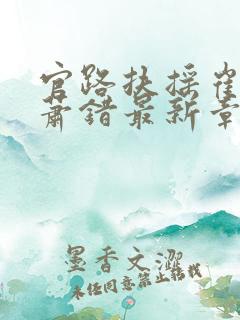 官路扶摇崔
肃错最新章
墨香文澀
未经同意禁止转载